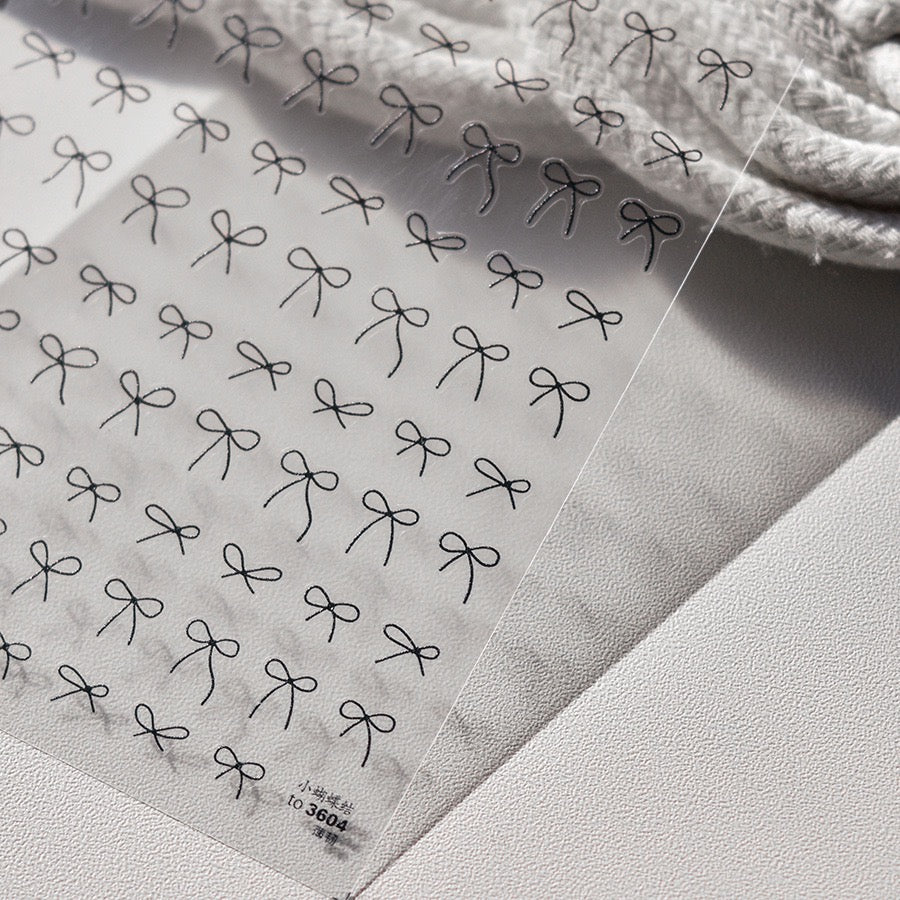 小蝴蝶结
to 3604